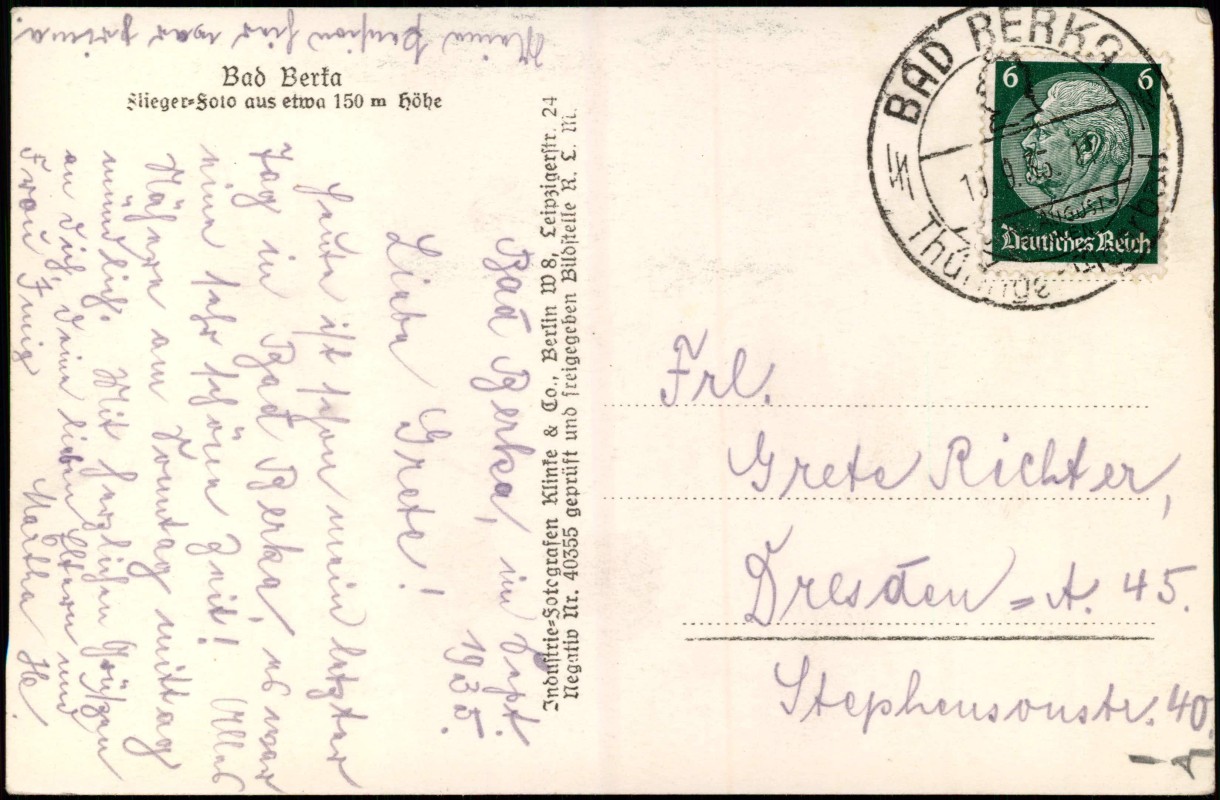 Meine Pension hier war prima.
Bad Berka
Flieger=Foto aus etwa 150 m Höhe
Bad Berka, im Sept.
1935.
Liebe Grete!
Heute ist schon mein letzter
Tag in Bad Berka, es war
eine sehr schöne Zeit! Alles
Nähere am Sonntag mittag
mündlich. Mit herzlichen Grüßen
an dich, deine lieben Eltern und
Frau
Martha He.
Industrie=Fotografen Klinke & Co., Berlin W 8, Leipzigerstr. 24
Negativ Nr. 40355 geprüft und freigegeben Bildstelle R. L. M.
BAD BERKA
Thüringe
6 6
Deutsches Reich
Frl.
Grete Richter,
Dresden=A. 45.
Stephensonstr. 40